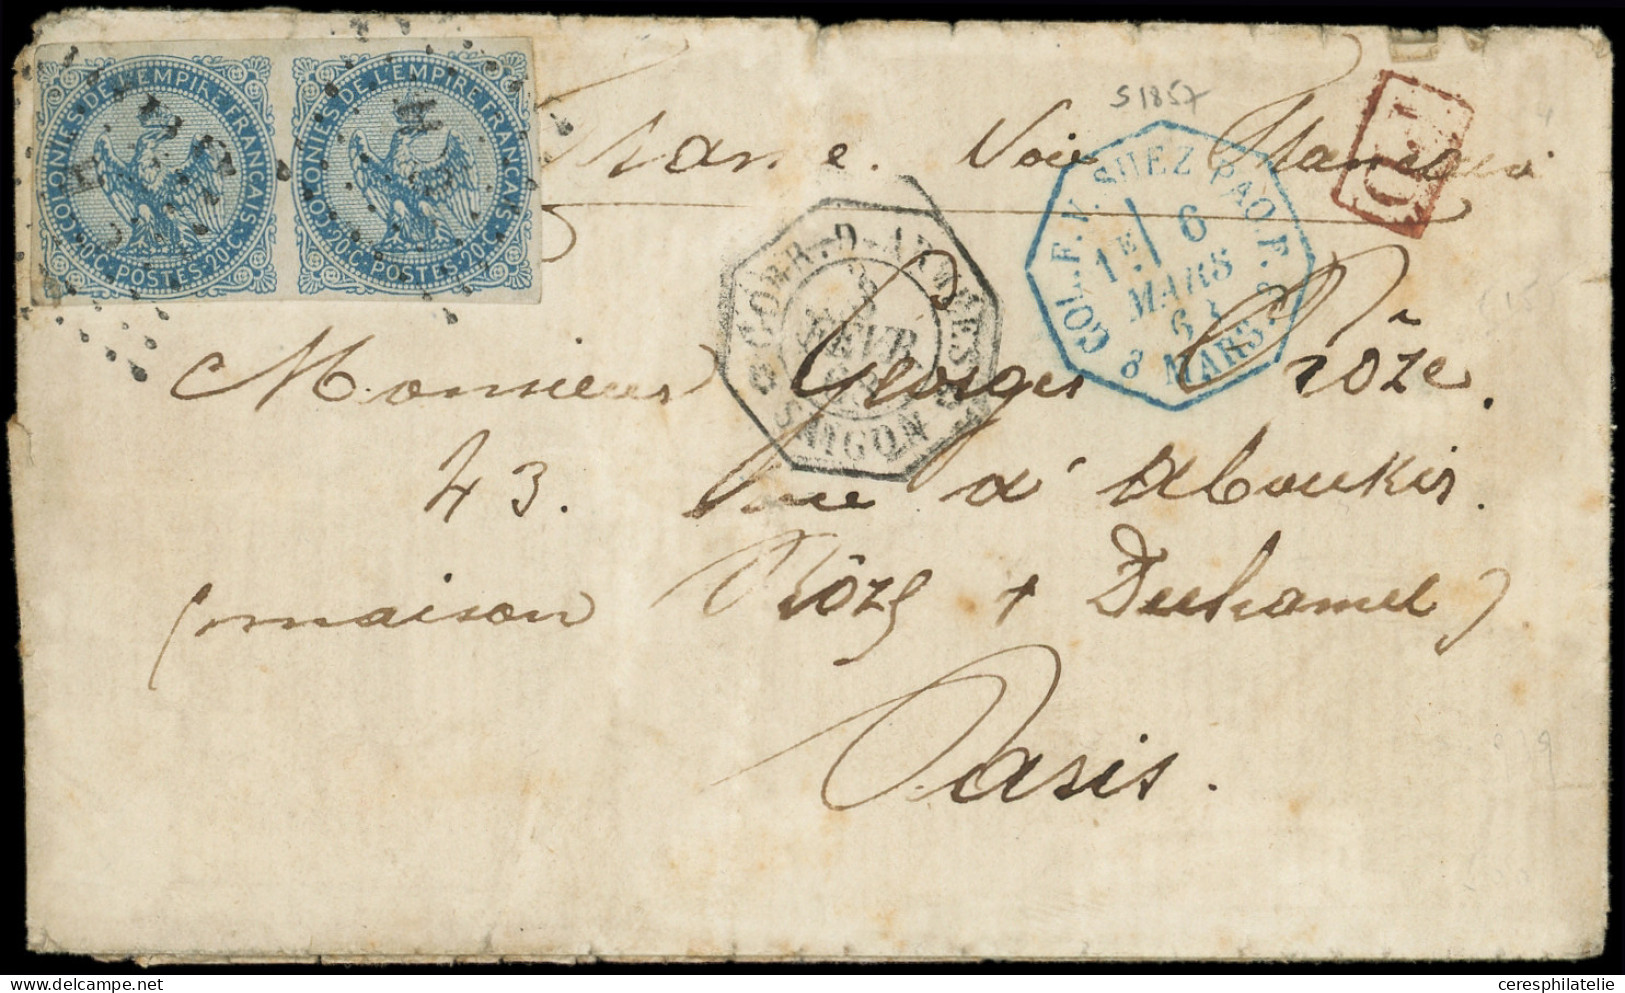 COLONIES DE L'EMPIRE FRANÇAIS
20C. POSTES. 20C.
COLONIES DE L'EMPIRE FRANÇAIS
20C. POSTES. 20C.
S1857
France. Voie
P.D.
COL. F. V. SUEZ PAQ. F.
1E 6
MARS
MARS
CORR. D. ARMEES
FEVR
SAIGON
Monsieur Georges Rôze.
43. Rue d'Aboukir.
(maison Rôze + Duhamel)
Paris.
ceresphilatelie